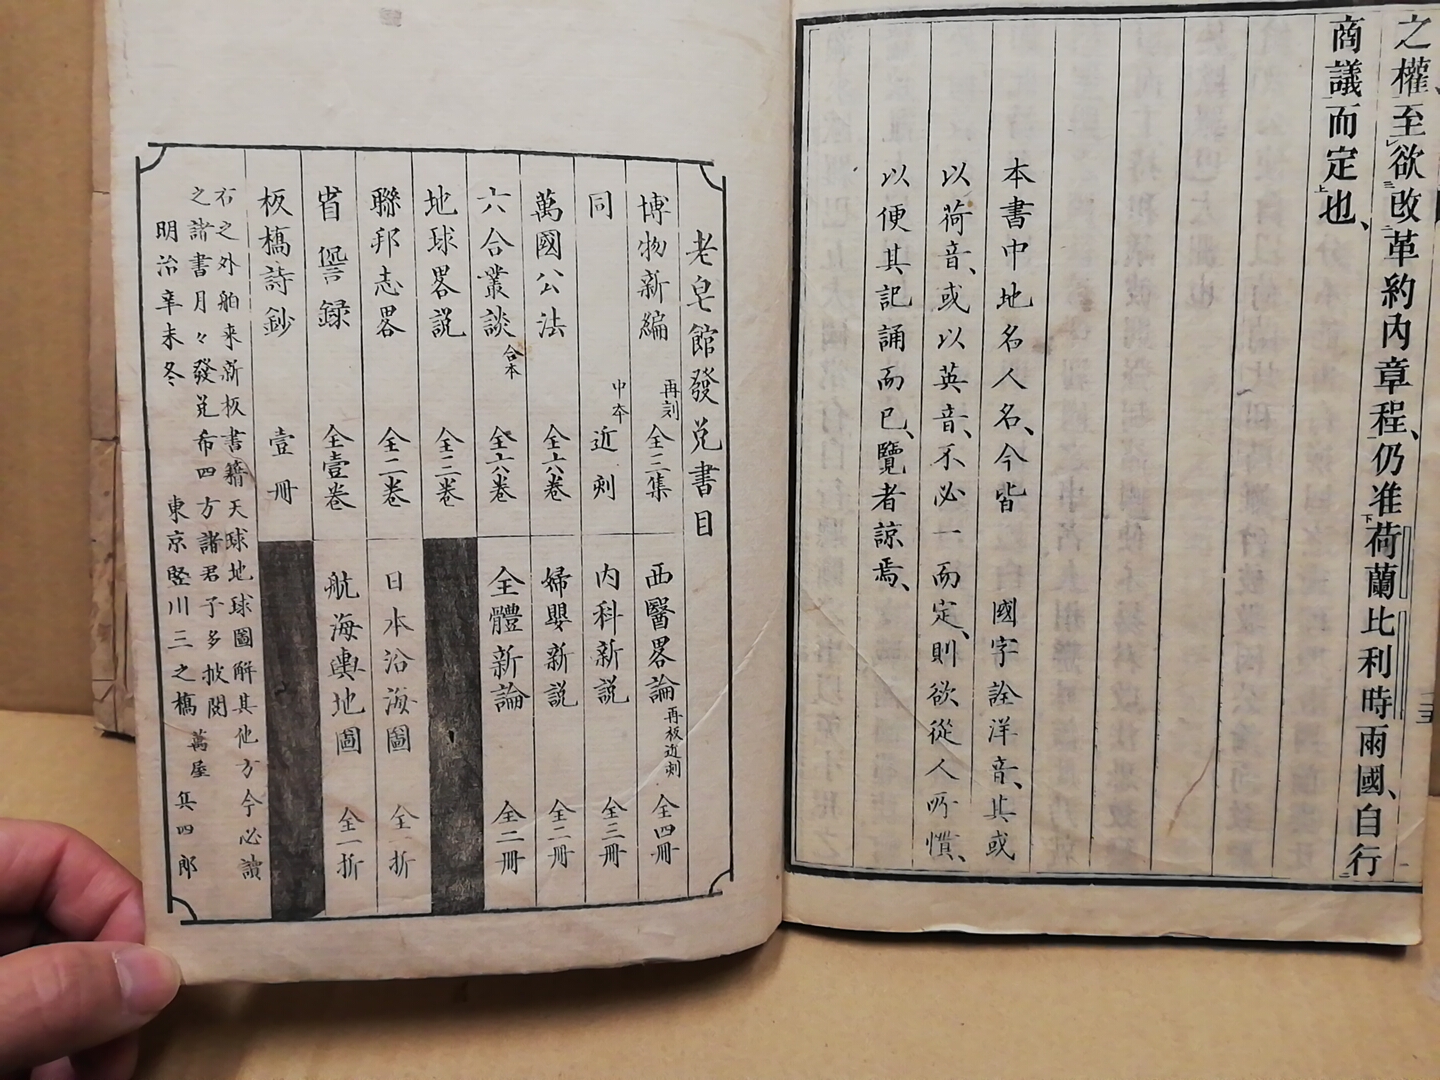 之權至欲改革約内章程、仍准荷蘭比利時兩國、自行
商議而定也、
本書中地名人名、今皆國字詮洋音、其或
以荷音、或以英音、不必一而定、則欲從人所慣、
以便其記誦而已、覽者諒焉、
老皂館發兌書目
博物新編 再刻 全三集
西醫畧論 再板近刻 全四冊
同 中本 近刻
内科新説 全三冊
萬國公法 全六巻
婦嬰新説 全二冊
六合叢談 合本 全六巻
全體新論 全二冊
地球畧説 全三巻
聯邦志畧 全二巻
日本沿海圖 全一折
省諐録 全壹巻
航海輿地圖 全一折
板橋詩鈔 壹冊
右之外舶来新板書籍天球地球圖解其他方今必讀
之諸書月々發兌希四方諸君子多披閲
明治辛未冬 東京竪川三之橋 萬屋兵四郎